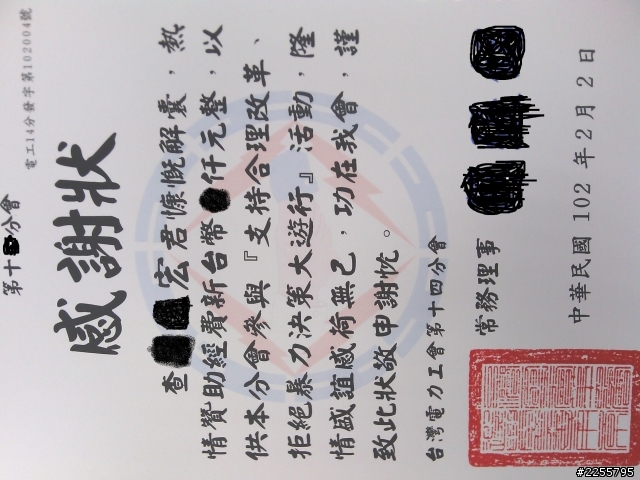 電工14分發字第102004號
第十分會
感謝狀
查宏君慷慨解囊，熱
情贊助經費新台幣仟元整，以
供本分會參與『支持合理改革、
拒絕暴力決策大遊行』活動，隆
情盛誼感荷無已，功在我會，謹
致此狀敬申謝忱。
台灣電力工會第十四分會
常務理事
中華民國 102 年 2 月 2 日
#2255795